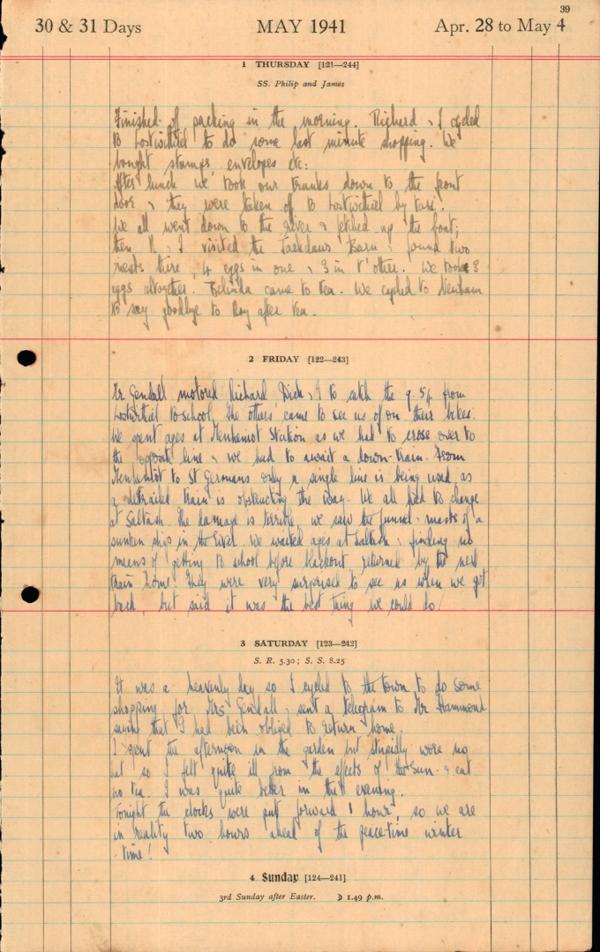 39
30 & 31 Days MAY 1941 Apr. 28 to May 4
1 THURSDAY [121—244]
SS. Philip and James
Finished of packing in the morning. Richard & I cycled
to Lostwithiel to do some last minute shopping. We
bought stamps, envelopes etc:
After lunch we took our trunks down to the front
door & they were taken of to Lostwithiel by taxi.
We all went down to the river & fetched up the boat;
then R. & I visited the Jackdaws' Barn & found two
nests there, 4 eggs in one & 3 in t'other. We took 3
eggs altogether. Belinda came to tea. We cycled to
to say goodbye to Roy after tea.
2 FRIDAY [122—243]
Mr Gendall motored Richard, Dick & I to catch the 9.54 from
Lostwithiel to school, the others came to see us of on their bikes.
We spent ages at Menheniot Station as we had to cross over to
the opposite line & we had to await a down-train. From
Menheniot to St Germans only a single line is being used as
a detrailed train is obstructing the way. We all had to change
at Saltash. The damage is terrible, we saw the funnel & masts of a
sunken ship in the river. We waited ages at Saltash & finding no
means of getting to school before blackout, returned by the next
train home. They were very surprised to see us when we got
back, but said it was the best thing we could do.
3 SATURDAY [123—242]
S. R. 5.30; S. S. 8.25
It was a heavenly day so I cycled to the town to do some
shopping for Mrs Gendall & sent a telegram to Mr Hammond
saying that I had been obliged to return home.
I spent the afternoon in the garden but stupidly wore no
hat so I felt quite ill from the effects of the sun & eat
no tea. I was quite better in the evening.
Tonight the clocks were put forward 1 hour, so we are
in reality two hours ahead of the peace-time winter
time!
4 Sunday [124—241]
3rd Sunday after Easter. ☽ 1.49 p.m.